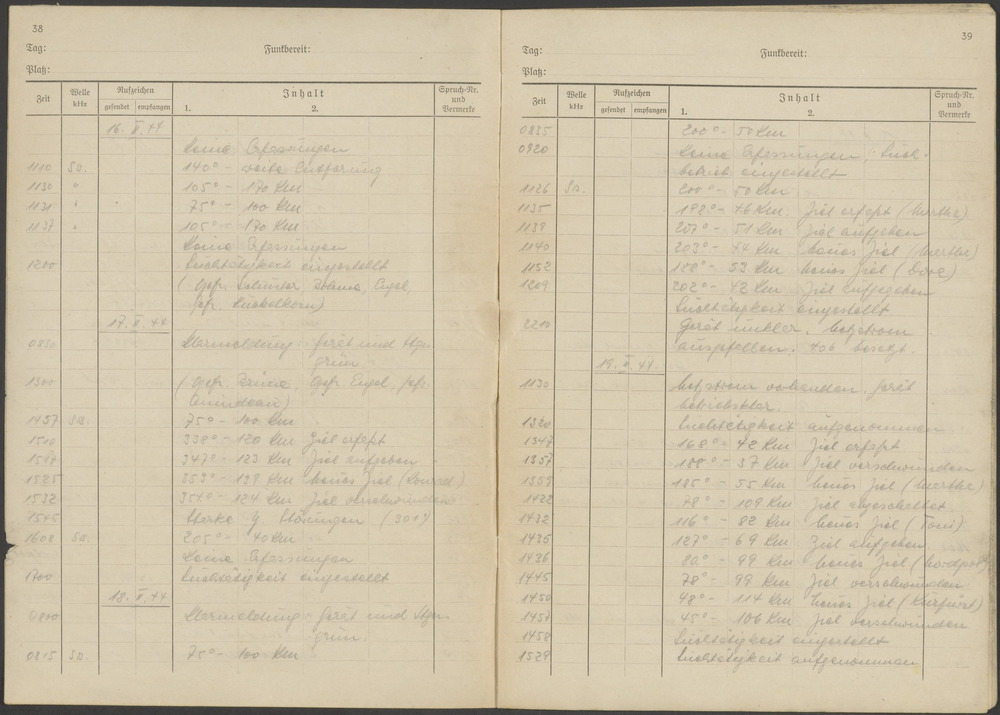 38
Tag:
Funkbereit:
Platz:
Zeit Welle kHz Rufzeichen gesendet empfangen Inhalt 1. 2. Spruch-Nr. und Vermerke
16. II. 44
Keine Erfassungen
1110 Sa. 140° - weite Entfernung
1130 " 105° - 170 Km
1131 " 75° - 100 Km
1137 " 105° - 170 Km
Keine Erfassungen
1200 Suchtätigkeit eingestellt
17. II. 44
0830 Klarmeldung - Gerät und
grün
1300 (Gefr. Gefr. Eigel, Gefr.
1457 Sa. 75° - 100 Km
1510 338° - 120 Km Ziel erfaßt
347° - 123 Km Ziel aufgeben
1525 353° - 129 Km neues Ziel (Konrad)
1532 354° - 124 Km Ziel verschwunden
1545 Starke Störungen (301)
1608 Sa. 205° - 40 Km
Keine Erfassungen
1700 Suchtätigkeit eingestellt
18. II. 44
0800 Klarmeldung - Gerät und
grün.
0815 Sa. 75° - 100 Km
39
Tag:
Funkbereit:
Platz:
Zeit Welle kHz Rufzeichen gesendet empfangen Inhalt 1. 2. Spruch-Nr. und Vermerke
0835 200° - 50 Km
0920 Keine Erfassungen, Such-
betrieb eingestellt
1126 Sa. 200° - 50 Km
1135 192° - 46 Km Ziel erfaßt (Martha)
1139 207° - 51 Km Ziel aufgeben
1140 203° - 44 Km neues Ziel (Martha)
1152 188° - 53 Km neues Ziel (Dora)
1209 202° - 42 Km Ziel aufgegeben
Suchtätigkeit eingestellt
2210 Gerät unklar. Netzstrom
ausgefallen. 406 besetzt.
19. II. 44.
1130 Netzstrom vorhanden. Gerät
betriebsklar.
1320 Suchtätigkeit aufgenommen
1347 168° - 42 Km Ziel erfaßt
1357 180° - 37 Km Ziel verschwunden
1359 185° - 55 Km neues Ziel (Martha)
1422 78° - 109 Km Ziel
1432 116° - 82 Km neues Ziel (Toni)
1435 127° - 69 Km Ziel aufgeben
1436 80° - 99 Km neues Ziel (Nordpol)
1445 78° - 99 Km Ziel verschwunden
1450 48° - 114 Km neues Ziel (Kurfürst)
1457 45° - 106 Km Ziel verschwunden
1458 Suchtätigkeit eingestellt
1529 Suchtätigkeit aufgenommen